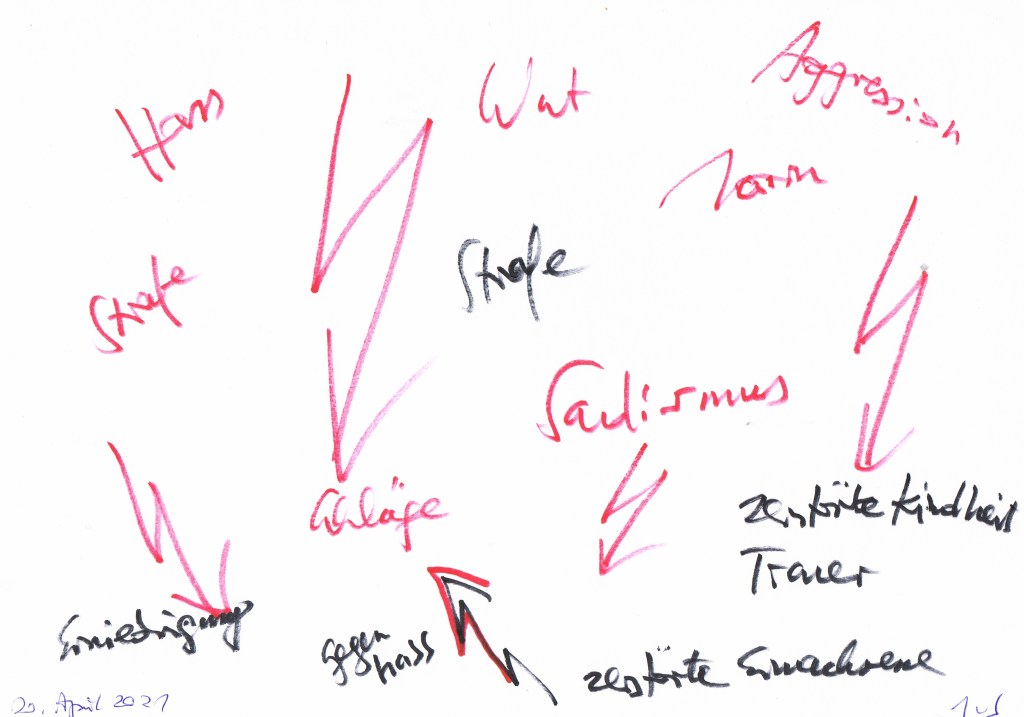 Aggression
Wut
Hass
Lärm
Strafe
Strafe
Sadismus
Schläge
zerstörte Kindheit
Trauer
Erniedrigung
gegen
hass
zerstörte Erwachsene
20. April 2021